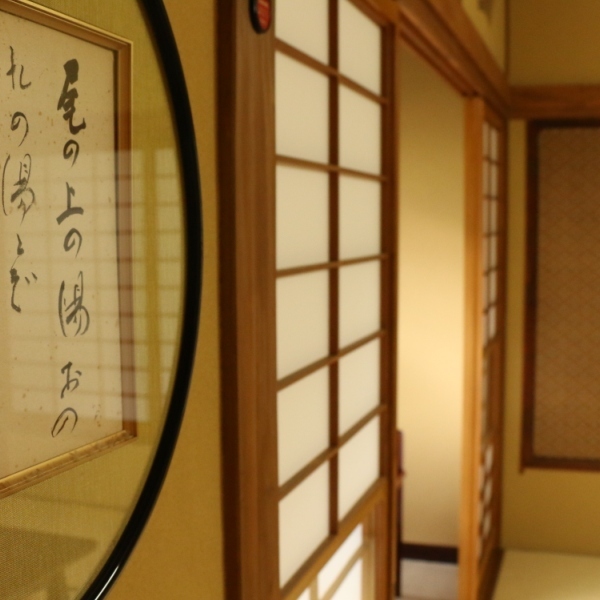 尾の上の湯おの
れの湯とぞ